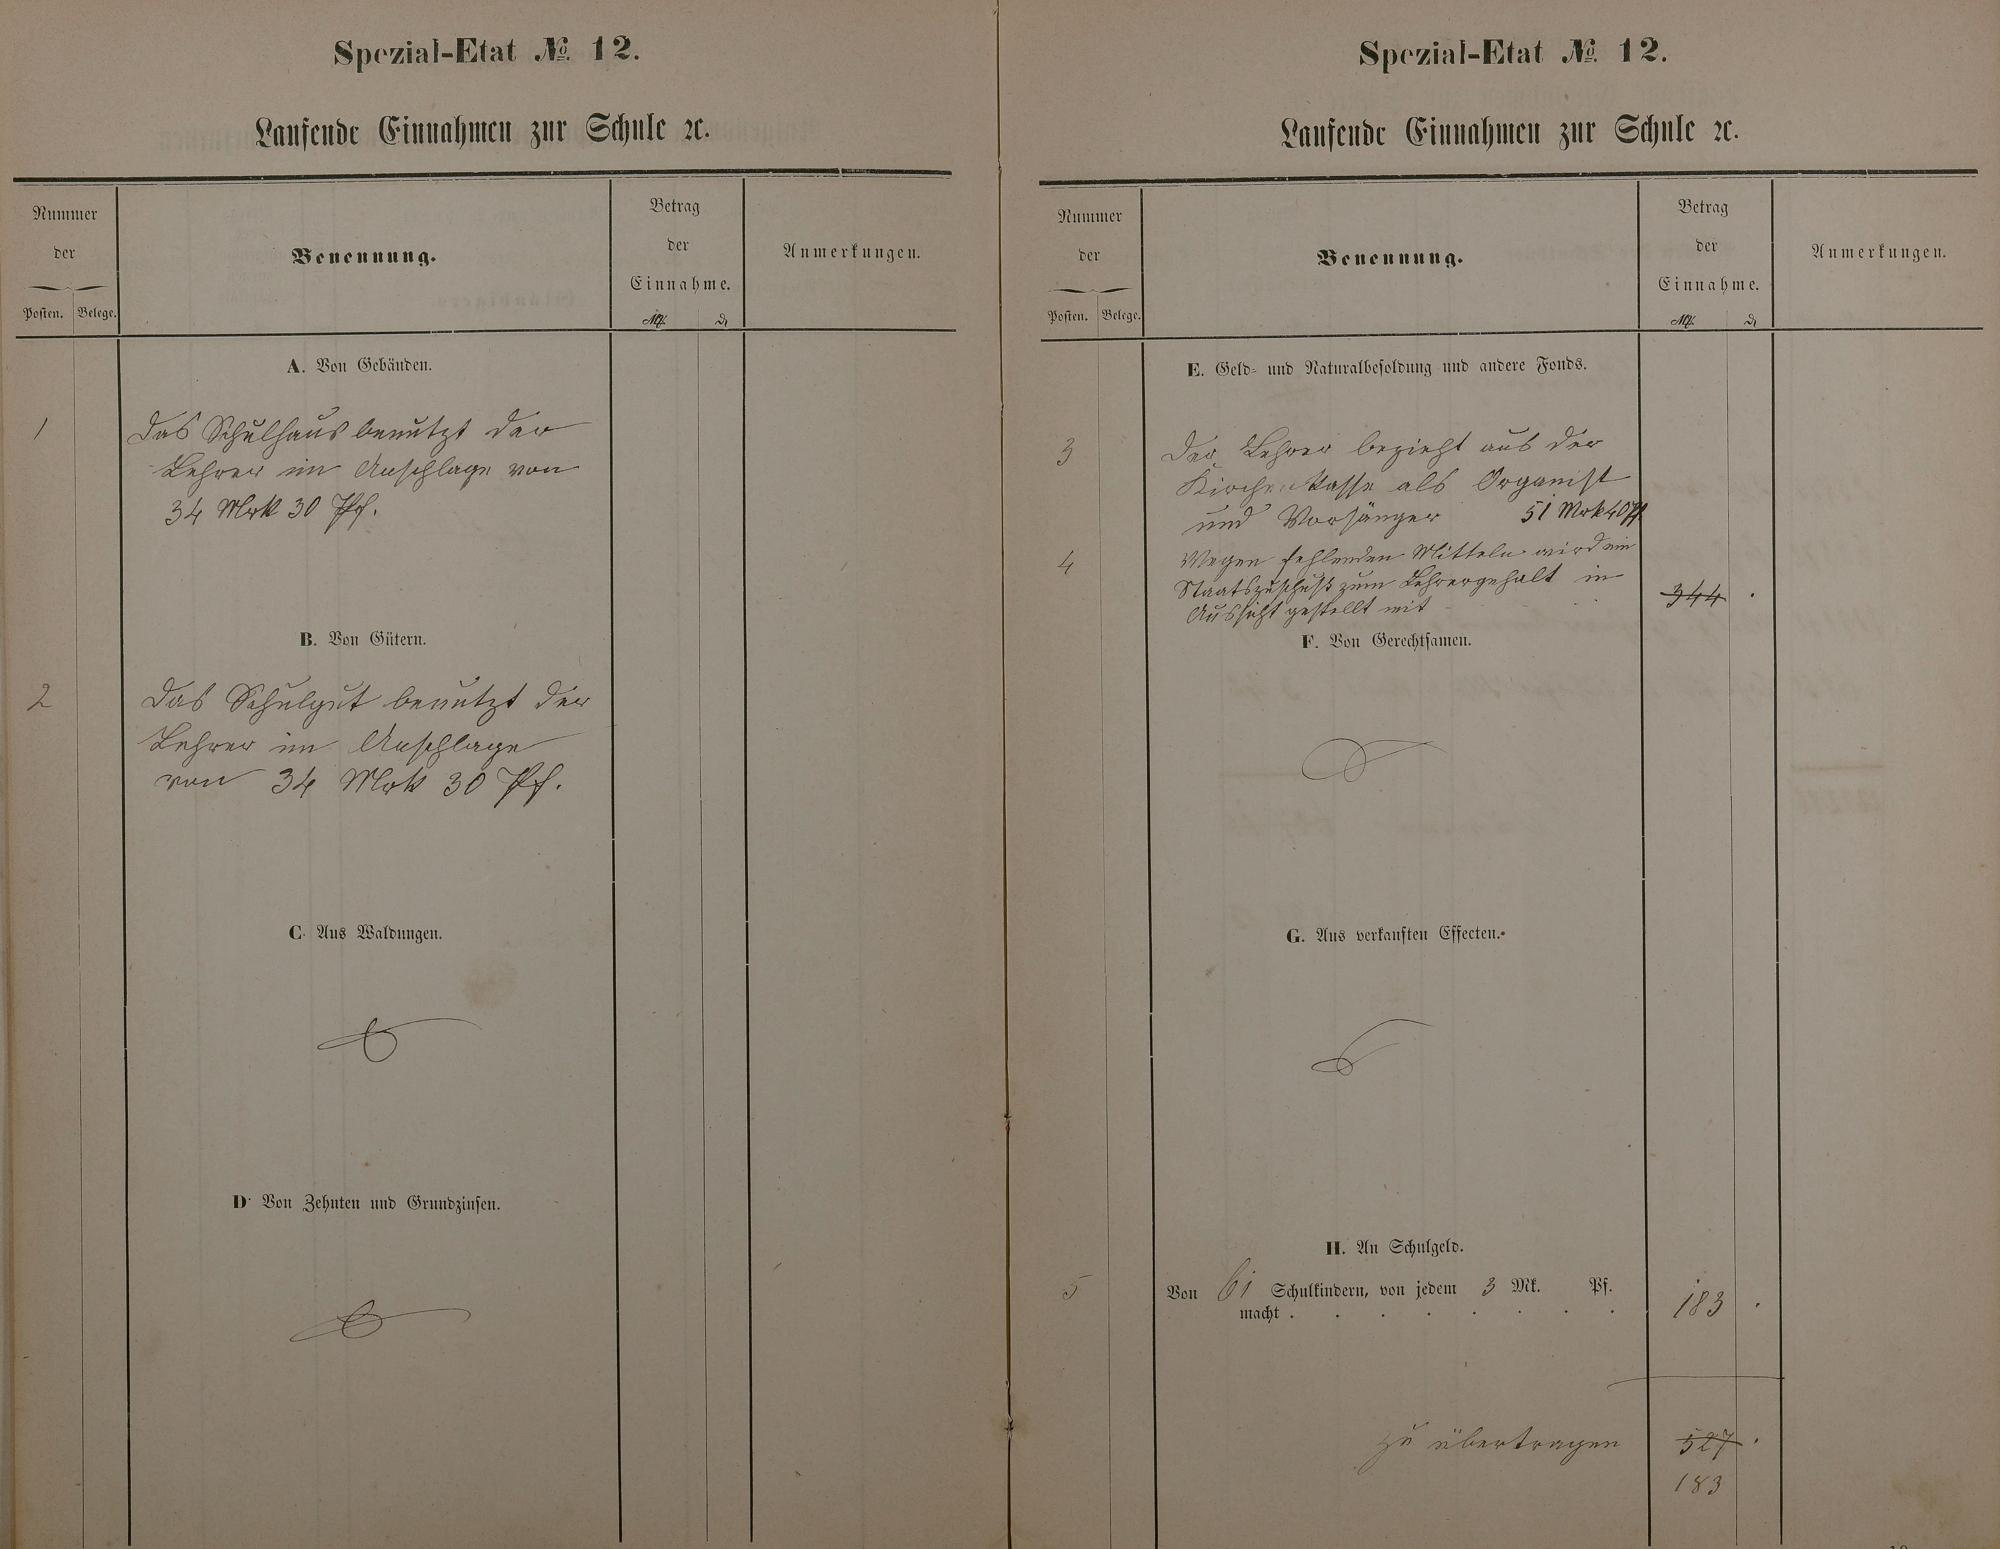 Spezial-Etat No. 12.
Laufende Einnahmen zur Schule ꝛc.
Nummer
der
Posten. Belege.
Benennung.
Betrag
der
Einnahme.
Mk. ₰
Anmerkungen.
A. Von Gebäuden.
1 Das Schulhaus benutzt der
Lehrer im Anschlage von
34 Mrk 30 Pf.
B. Von Gütern.
2 Das Schulgut benutzt der
Lehrer im Anschlage
von 34 Mrk 30 Pf.
C. Aus Waldungen.
D. Von Zehnten und Grundzinsen.
Spezial-Etat No. 12.
Laufende Einnahmen zur Schule ꝛc.
Nummer
der
Posten. Belege.
Benennung.
Betrag
der
Einnahme.
Mk. ₰
Anmerkungen.
E. Geld- und Naturalbesoldung und andere Fonds.
3 Der Lehrer bezieht aus der
Kirchenkasse als Organist
und Vorsänger 51 Mrk 40 Pf
4 Wegen fehlenden Mitteln wird ein
Staatszuschuß zum Lehrergehalt in
Aussicht gestellt mit 344 .
F. Von Gerechtsamen.
G. Aus verkauften Effecten.
H. An Schulgeld.
5 Von 61 Schulkindern, von jedem 3 Mk. Pf.
macht . . . . . . . . 183 .
zu übertragen 527 .
183